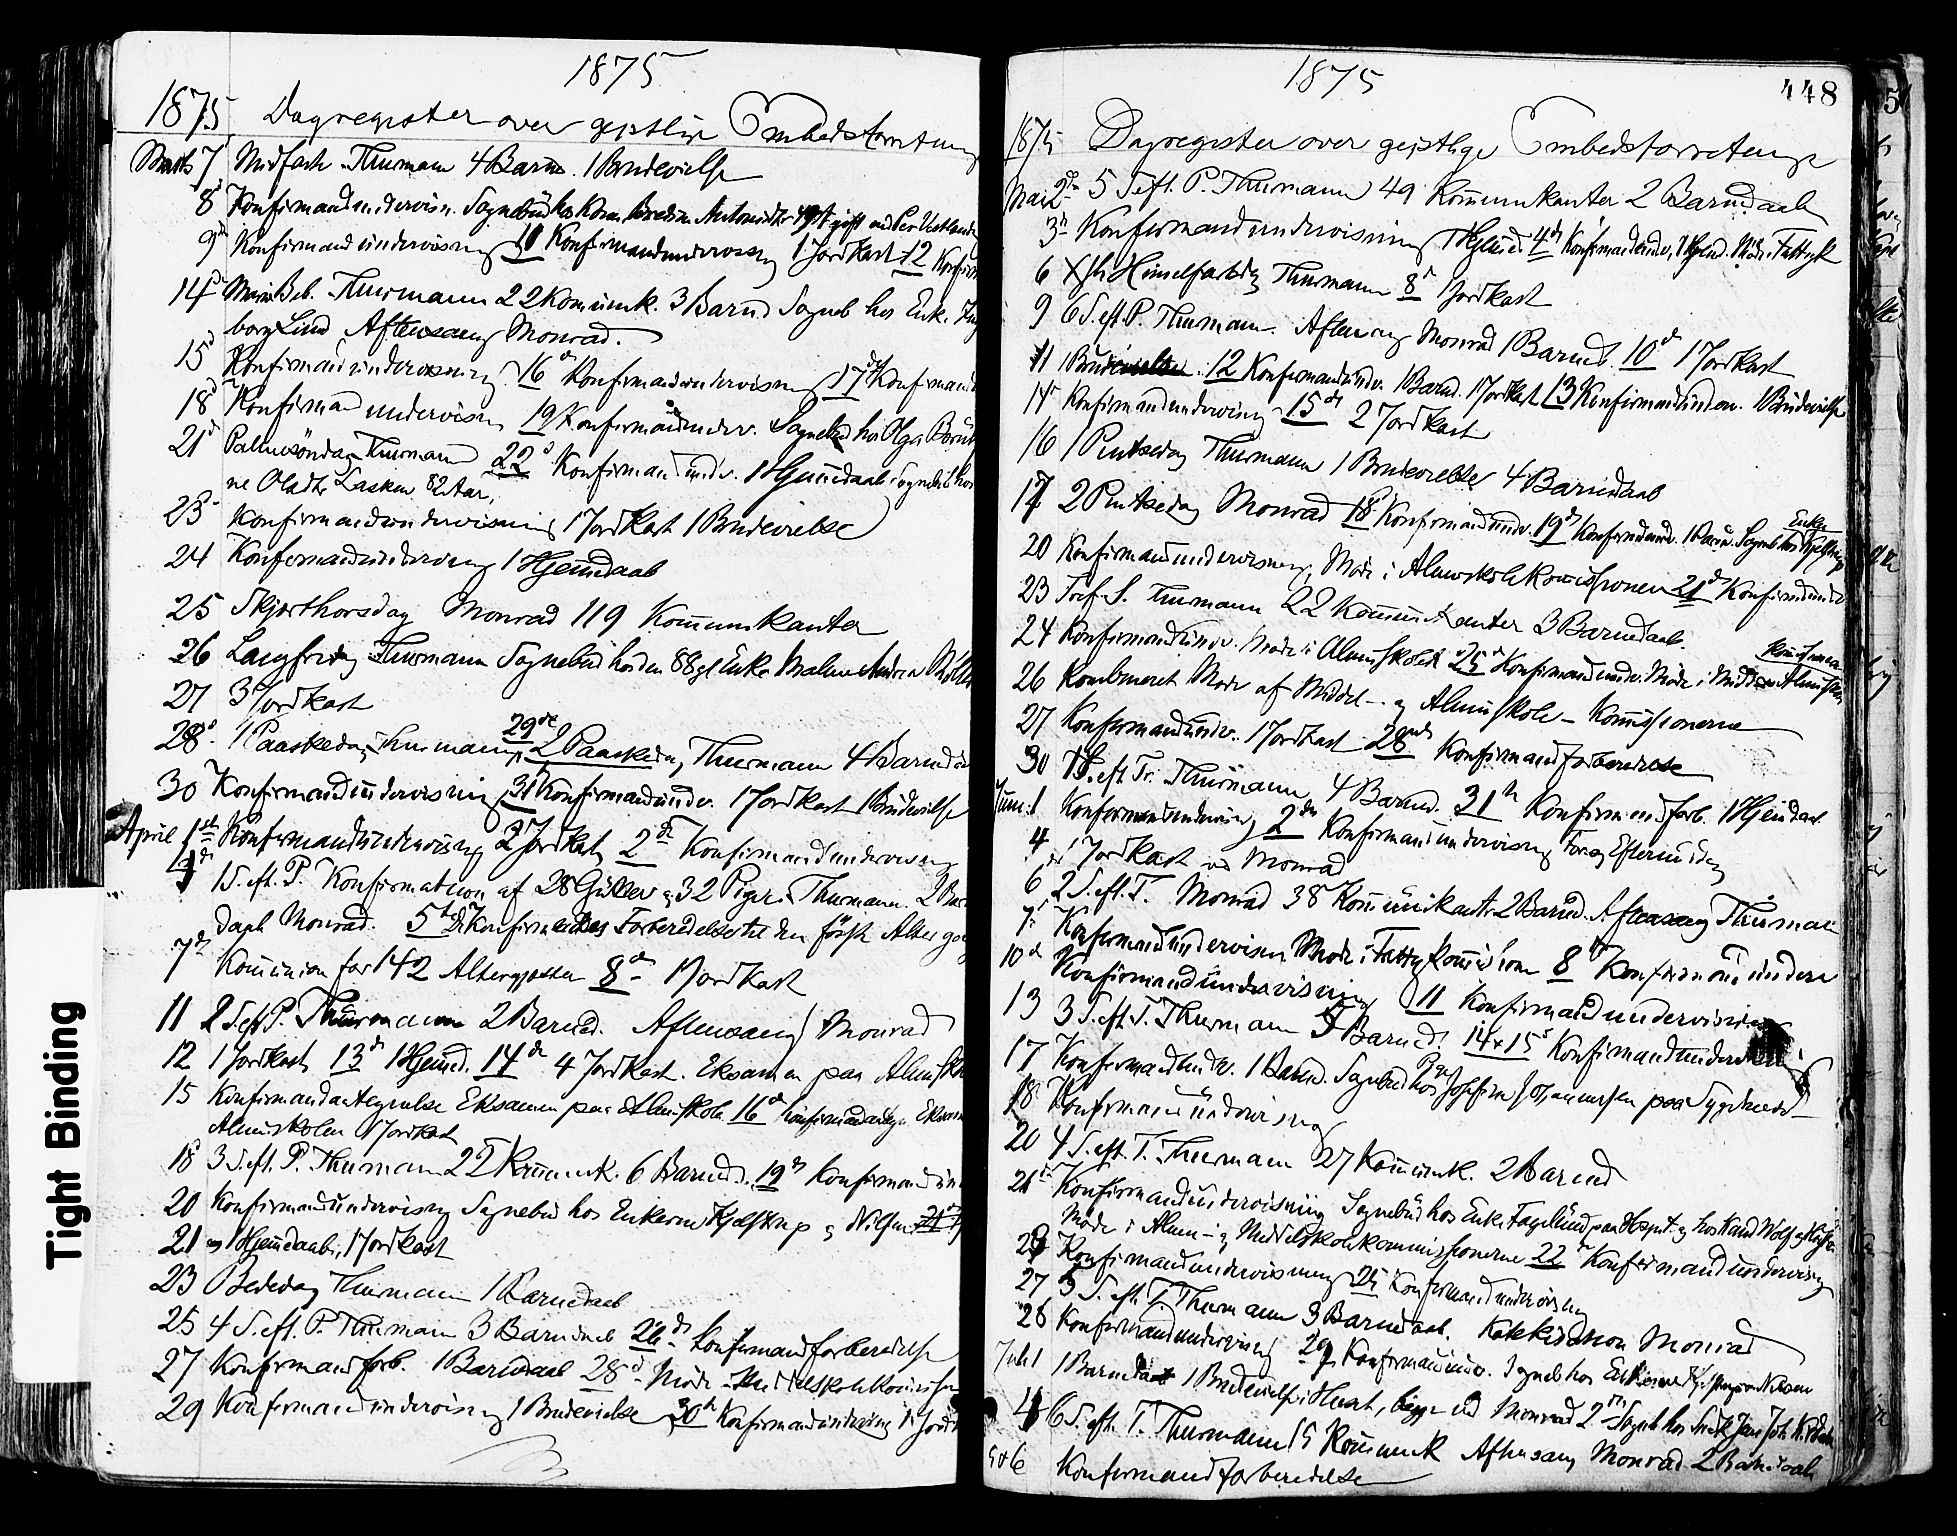 1875
1875 Dagregister over geistlige Embedsforretning
Marts 7 Midfaste Thurmann 4 Barne. 1 Brudevielse
8 Konfirmandundervisn. Sognebud hos
9 Konfirmandundervisning 10 Konfirmandundervisning 1 Jordkast 12 Konfirm
14 Mariæ Beb. Thurmann 22 Kommunik. 3 Barnd Sogneb hos Enk. Ing
borg Lund Aftensang Monrad.
15 Konfirmandundervisning 16 Konfirmandundervisning 17 Konfirmand
18 Konfirmandundervisn 19 Konfirmandunderv. Sognebud hos Olga
21 Palmesöndag Thurmann 22 Konfirmandundv. 1 Hjemmedaab Sognebud hos
ne Oladtr Lasken 82 Aar,
23 Konfirmandundervisning 1 Jordkast 1 Brudevielse
24 Konfirmandundervisning 1 Hjemmedaab
25 Skjærthorsdag Monrad 119 Kommunikanter
26 Langfredag Thurmann Sognebud hos den 88 g Enke
27 3 Jordkast
28 1 Paaskedag Thurmann, 29de 2 Paaskedag Thurmann 4 Barnedaab
30 Konfirmandundervisning 31 Konfirmandundv. 1 Jordkast 1 Brudevielse
April 1st Konfirmandundervisning 2 Jordkast, 2de Konfirmandundervisning
4de 1 S. eft. P. Konfirmation af 28 Gutter og 32 Piger. Thurmann. 2 Bar
daab Monrad. 5te Konfirmandes Forberedelse til den förste Alter
7de Kommunion for 142 Altergjester 8de 1 Jordkast
11 2 S. eft P. Thurmann 2 Barned. Aftensang Monrad
12 1 Jordkast 13de 1 Hjemmed. 14de 4 Jordkast. Eksamen paa Almusk
15 Konfirmandantegnelse Eksamen paa Almuskole 16de Konfirmandantegn. Eksam
Almuskolen 1 Jordkast
18 3 S. eft. P. Thurmann 22 Kommunik. 6 Barned. 19de Konfirmandun
20 Konfirmandundervisning Sognebud hos Enkerne Kjelstrup og Nilsen
21 1 Hjemmedaab, 1 Jordkast
23 Bededag Thurmann 1 Barnedaab
25 4 S. eft. P. Thurmann 3 Barnedaab 26de Konfirmandforberedelse
27 Konfirmandforb. 1 Barnedaab 28de Möde i Middelskolekommission
29 Konfirmandundervisning 1 Brudevielse 30te Konfirmandundervisning 1 Jordk
Tight Binding
1875
448
1875 Dagregister over geistlige Embedsforretninge
Mai 2de 5 S. eft. P. Thurmann 49 Kommunikanter 2 Barnedaab
3de Konfirmandundervisning 1 Hjemmed. 4de Konfirmandundv, 1 Hjemd. Möde i Fattigk
6 Xsti Himmelfartsdag Thurmann 8de 1 Jordkast
9 6 S. eft. P. Thurmann. Aftensang Monrad 1 Barned. 10de 1 Jordkast
11 1 Brudevielse. 12 Konfirmandundv. 1 Barnd. 1 Jordkast 13 Konfirmandundv. 1 Brudevielse
14 Konfirmandundervisning 15de 2 Jordkast
16 1 Pintsedag Thurmann 1 Brudevielse 4 Barnedaab
17 2 Pintsedag Monrad 18 Konfirmandundv. 19de Konfirmandund. 1 Barn. Sogneb hos Enke Kjelstrup
20 Konfirmandundervisning, Möde i Almueskolekommissionen 21de Konfirmandundv
23 Tref. S. Thurmann 22 Kommunikanter 3 Barnedaab.
24 Konfirmandundv. Möde i Almuskolek 25de Konfirmandundv. Möde i Middel Almuskole kommissionen
26 Kombineret Möde af Middel- og Almuskole-Kommissionerne
27 Konfirmandundv. 1 Jordkast 28de Konfirmandforberedelse
30 1 S. eft. Tr. Thurmann 4 Barned. 31te Konfirmandforb. 1 Hjemdaab
Juni 1 Konfirmandundervisning 2den Konfirmandundervisning For og Eftermiddag
4 1 Jordkast ved Monrad
6 2 S. eft. T. Monrad 38 Kommunikanter 2 Barned. Aftensang Thurmann
7 Konfirmandundervisn Möde i Fattigkommissionen 8de Konfirmandundervi
10de Konfirmandundervisning 11 Konfirmandundervisning
13 3 S. eft. T. Thurmann 5 Barned. 14 & 15de Konfirmandundervisning
17 Konfirmandundv. 1 Barned. Sognebud hos Pige Josefine paa Sygehuset
18 Konfirmandundervisning
20 4 S. eft. T. Thurmann 27 Kommunik. 2 Barned
21 Konfirmandundervisning Sognebud hos Enke Fagerlund paa Hospit. og hos Kand Wolf
Möde i Almue- og Middelskolekommissionerne 22 Konfirmandundervisning
23 Konfirmandundervisning 25 Konfirmandundervisning
27 5 S. eft. T. Thurmann 3 Barnedaab. Katekisation Monrad
28 Konfirmandundervisning 29 Konfirmandundv. Sogneb hos Enkerne Kjelstrup og Nilsen
Juli 1 1 Barnedaab 1 Brudevielse i Huset, begge ved Monrad 2den Sogneb hos
4 6 S. eft. T. Thurmann 15 Kommunik Aftensang Monrad 2 Barnedaab
5 & 6 Konfirmandforberedelse